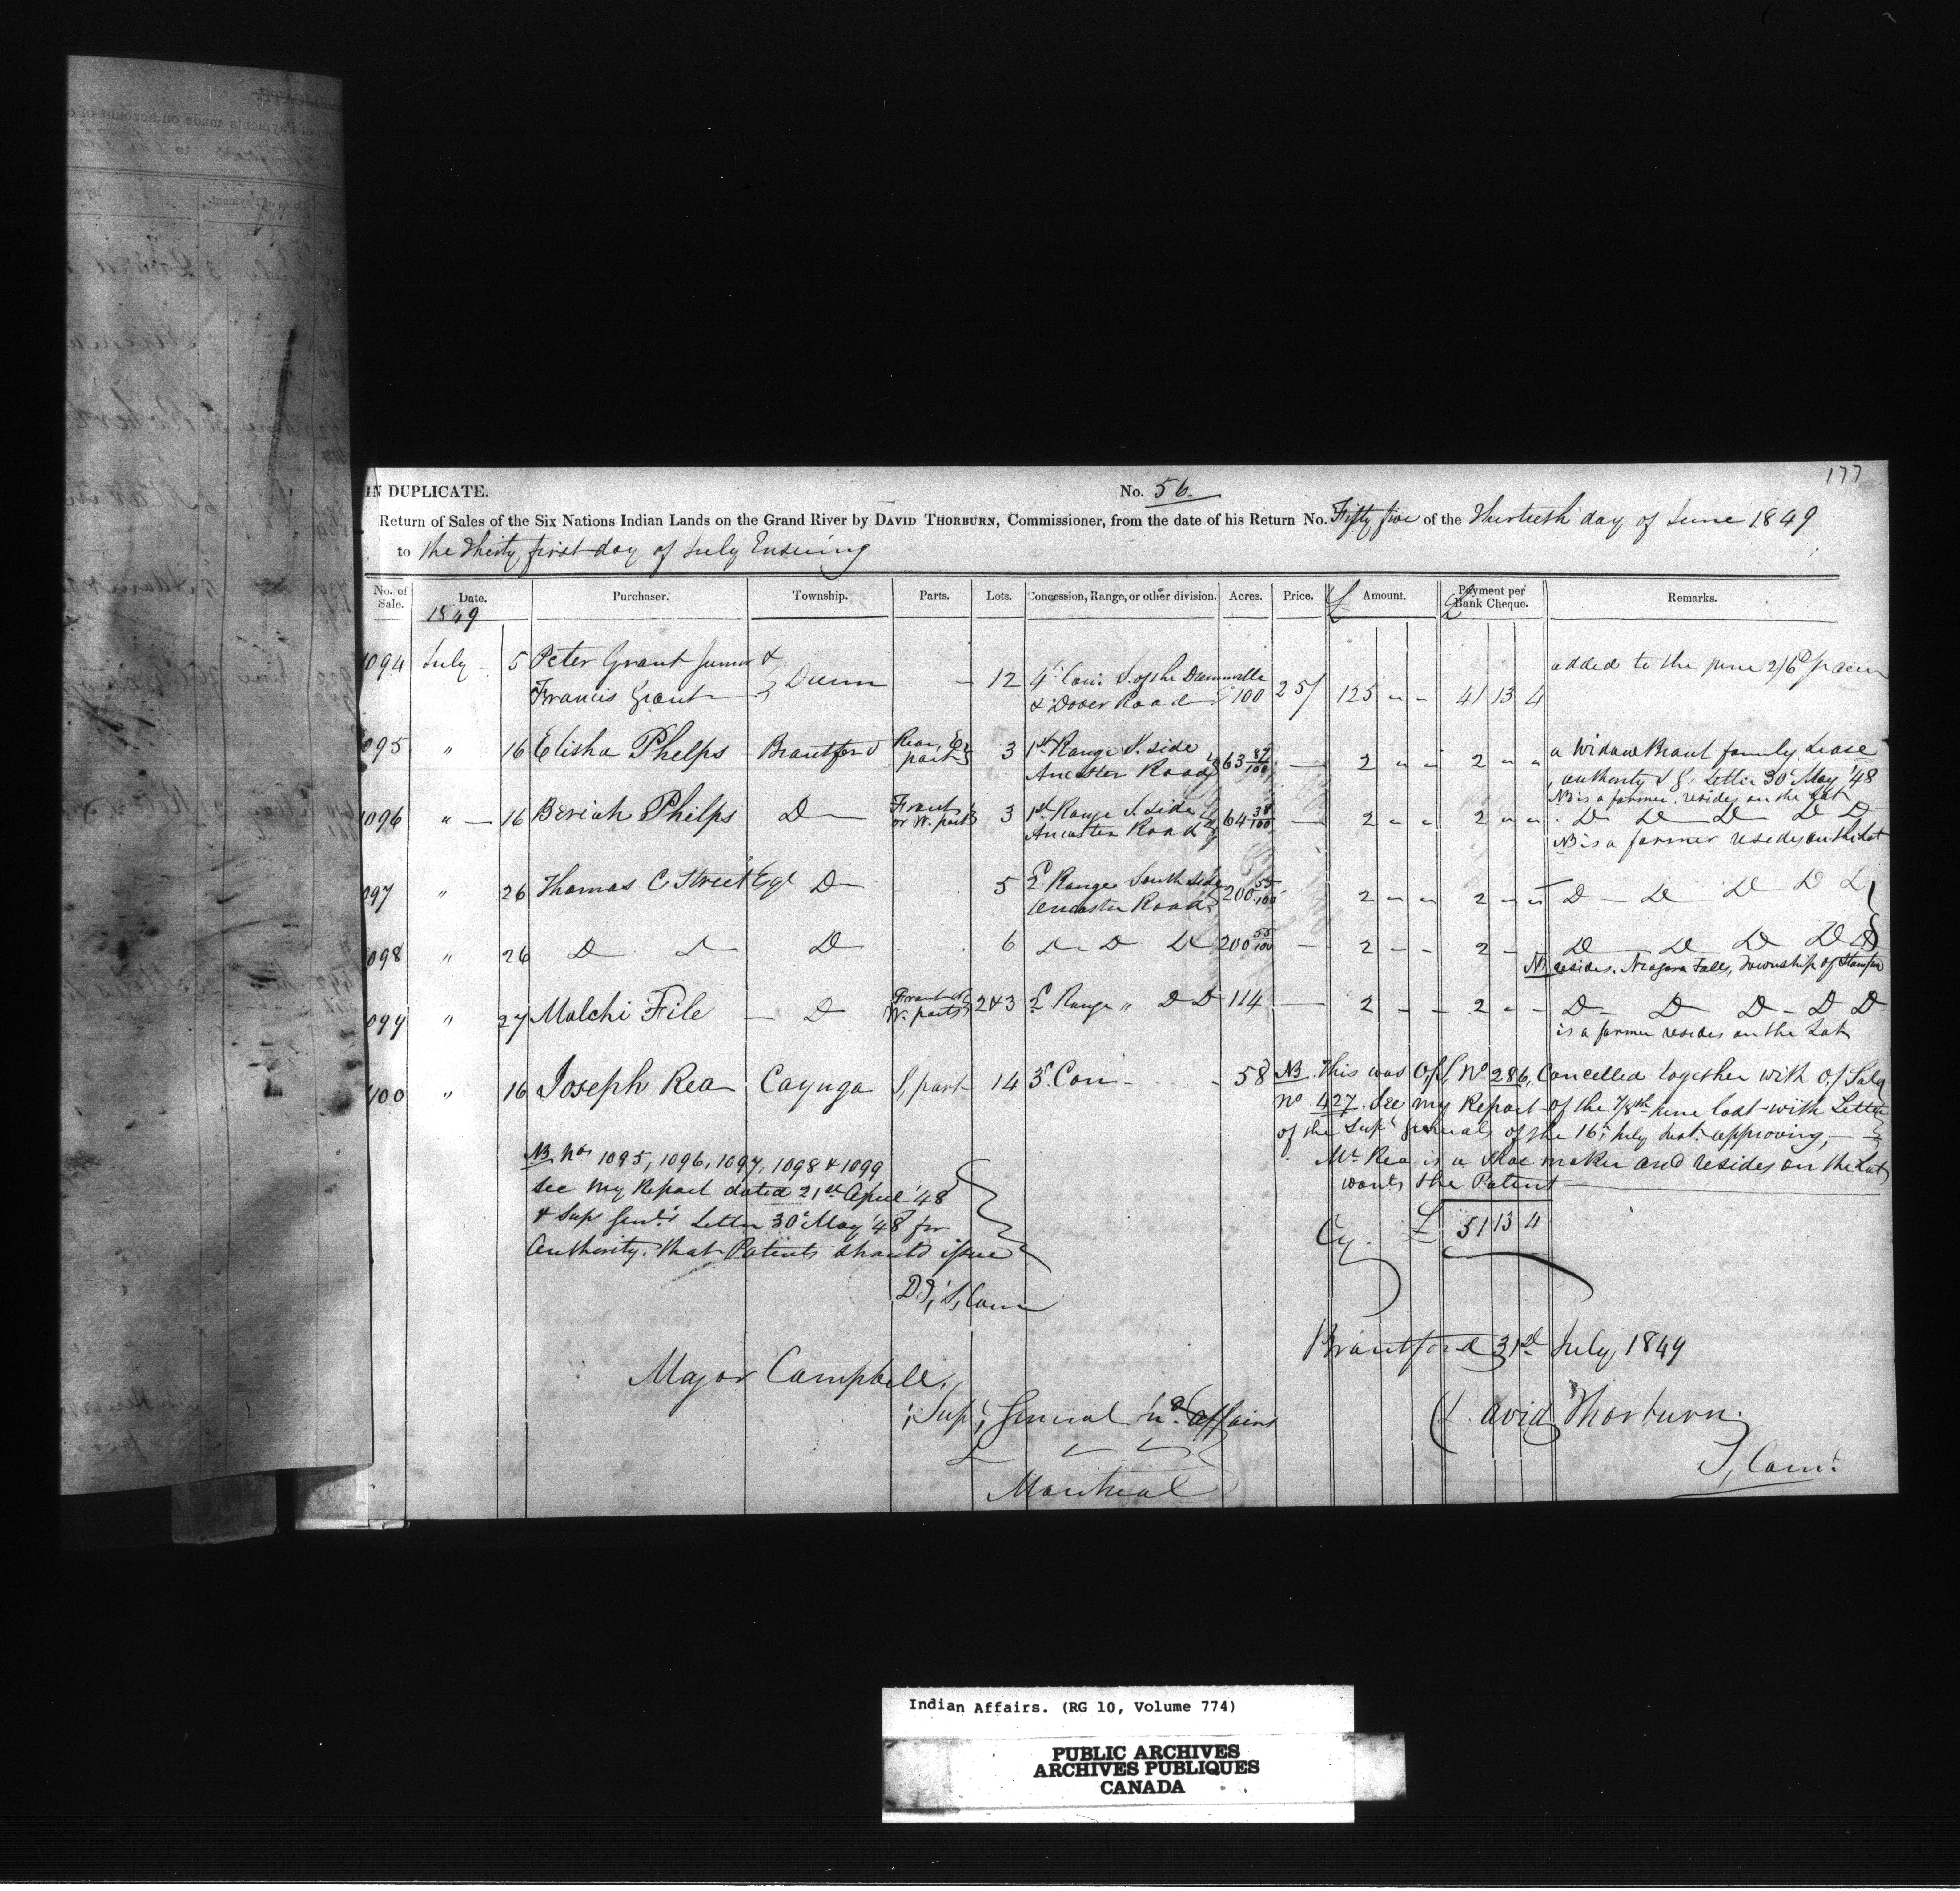 177
IN DUPLICATE.
No. 56.
Return of Sales of the Six Nations Indian Lands on the Grand River by DAVID THORBURN, Commissioner, from the date of his Return No. Fifty five of the Thirtieth day of June 1849
to the Thirty first day of July Ensuing
No. of Sale. Date. Purchaser. Township. Parts. Lots. Concession, Range, or other division. Acres. Price. £ Amount. £ Payment per Bank Cheque. Remarks.
1849
1094 July 5 Peter Grant Junior & Francis Grant } Dunn - 12 4th Con. S. of the Dunnville & Dover Road 100 25/ 125 " - 41 13 4 added to the price 2/6d p acre
1095 " 16 Elisha Phelps Brantford Rear, E. part } 3 1st Range S. side Ancaster Road } 63 89/100 — 2 " " 2 " " a Widow Brant family Lease
authority S. G. Letter 30th May '48
NB is a farmer. resides on the Lot
1096 " 16 Beriah Phelps D— Front or W. part } 3 1st Range S side Ancaster Road } 64 38/100 — 2 " " 2 " " D D D D D
NB is a farmer resides on the Lot
1097 " 26 Thomas C Street Esqr D— 5 2d Range South side Ancaster Road } 200 55/100 2 " " 2 " " D — D D D D
1098 " 26 D D D 6 D D D 200 55/100 — 2 - - 2 - D D D D D
N. resides. Niagara Falls, Township of Stamford
1099 " 27 Malchi File — D Front or W. parts } 2 & 3 2d Range " D D 114 — 2 - - 2 - - D D D - D D
is a farmer resides on the Lot
1100 " 16 Joseph Rea Cayuga S, part 14 3d Con - - 58 NB. This was O, S, No 286, Cancelled together with O. Sale
No 427. See my Report of the 7/8th June last with Letter
of the Supt. Generals of the 16th July Inst. approving, —
Mr Rea is a Shoe maker and resides on the Lot
wants the Patent
NB. Nos 1095, 1096, 1097, 1098 & 1099
see my Report dated 21st April '48
& Supt Genl's Letter 30th May '48 for
Authority. that Patents should issue
D. T, S, Comr
Cy. £ 51 13 4
Brantford 31st July 1849
Major Campbell,
Supt, General In. Affairs
Montreal
David Thorburn
S, Comr.
Indian Affairs. (RG 10, Volume 774)
PUBLIC ARCHIVES
ARCHIVES PUBLIQUES
CANADA